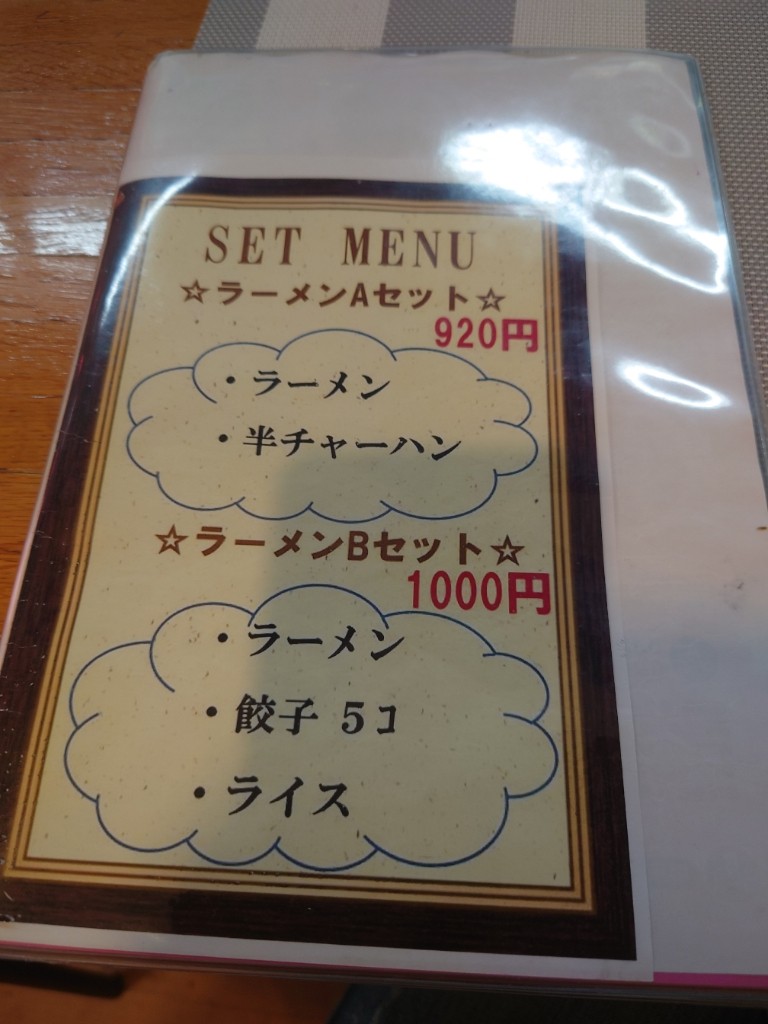 SET MENU
☆ラーメンAセット☆
920円
・ラーメン
・半チャーハン
☆ラーメンBセット☆
1000円
・ラーメン
・餃子 5コ
・ライス